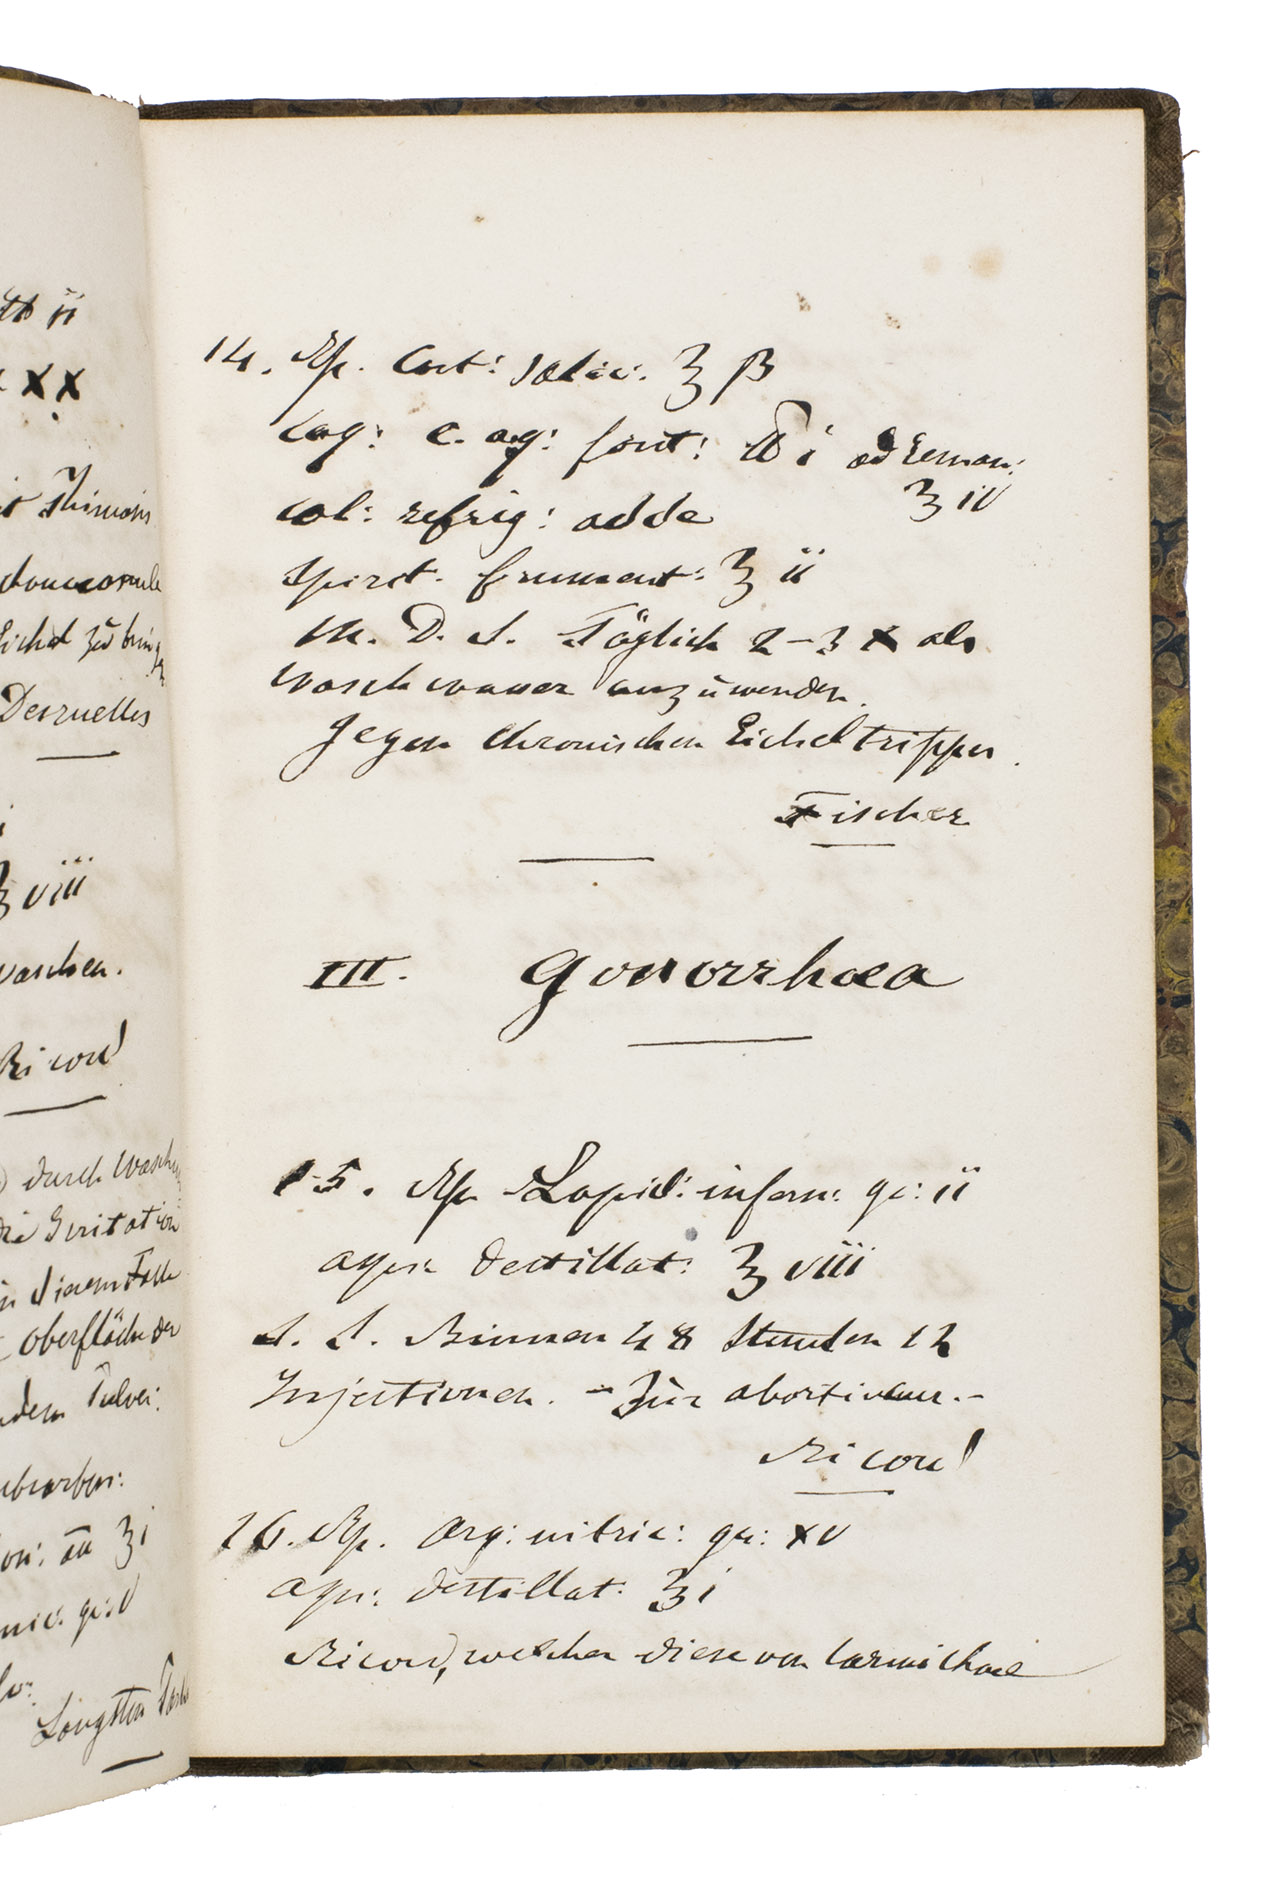 ℔ ii
xx
Desruelles
ʒ viii
waschen.
Ricord
durch Wasch
Irritation
Oberfläche der
Pulver:
āā ʒ i
gr: V
14. Rp. Cort: salic: ʒ β
coq: c. aq: font: ℔ i ad reman:
ʒ iv
col: refrig: adde
spirit. frument: ʒ ii
M. D. S. Täglich 2-3 x als
Waschwasser anzuwenden.
Gegen chronischen Eicheltripper.
Fischer
III. Gonorrhoea
15. Rp Lapid: infern: gr: ii
aqu: destillat: ʒ viii
S. S. Binnen 48 Stunden 12
Injectionen. - Zur abortiven -
Ricord
16. Rp. Arg: nitric: gr: xv
aqu: destillat: ʒ i
Ricord, welcher diese von Carmichael